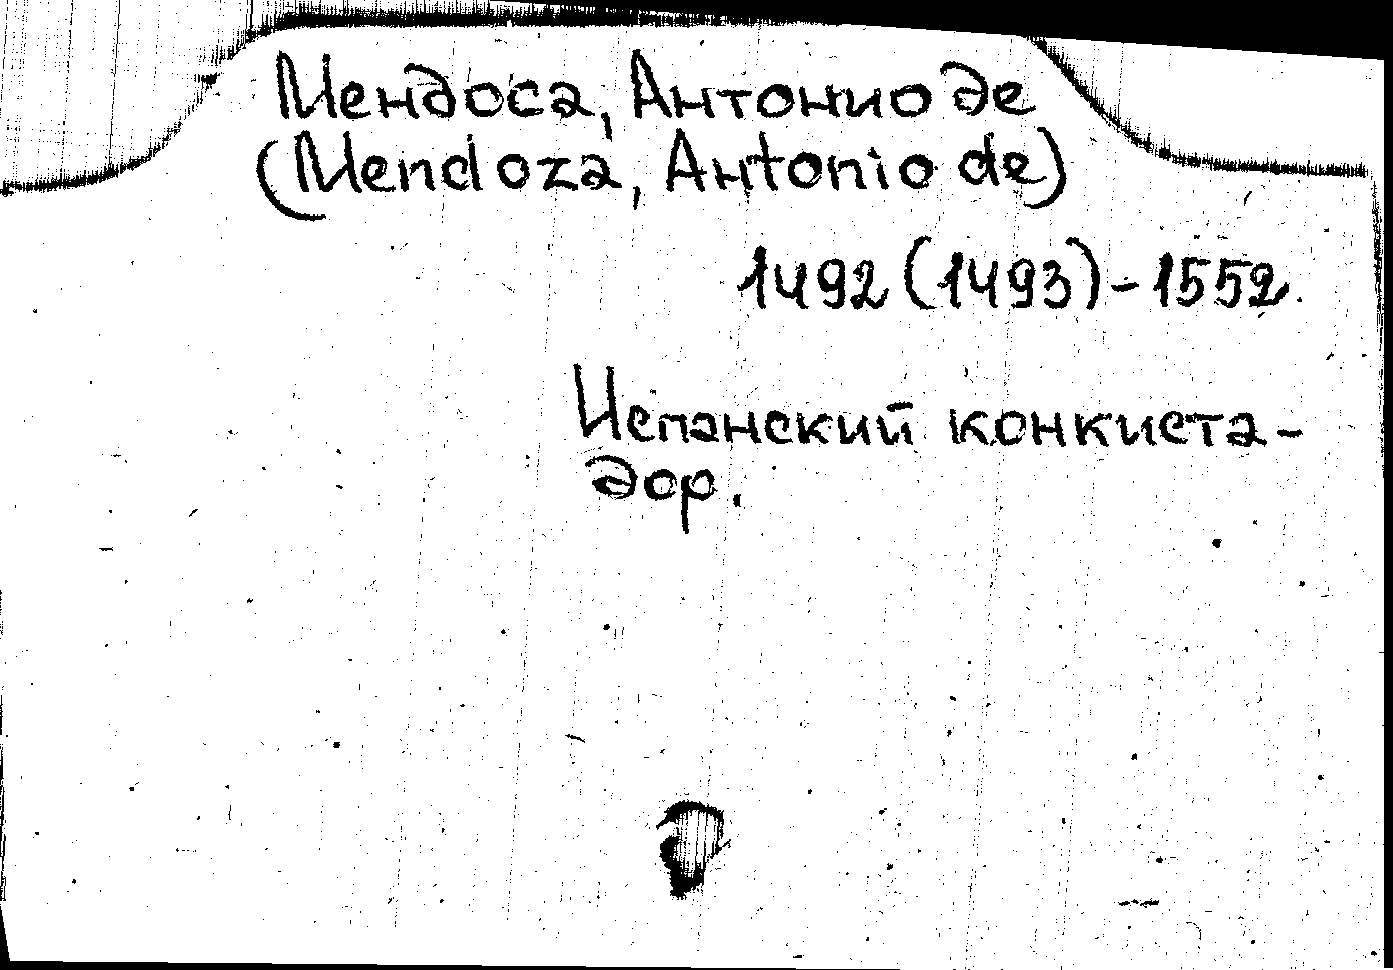 Мендоса, Антонио де
(Mendoza, Antonio de)
1492 (1493) - 1552.
Испанский конкиста-
дор.